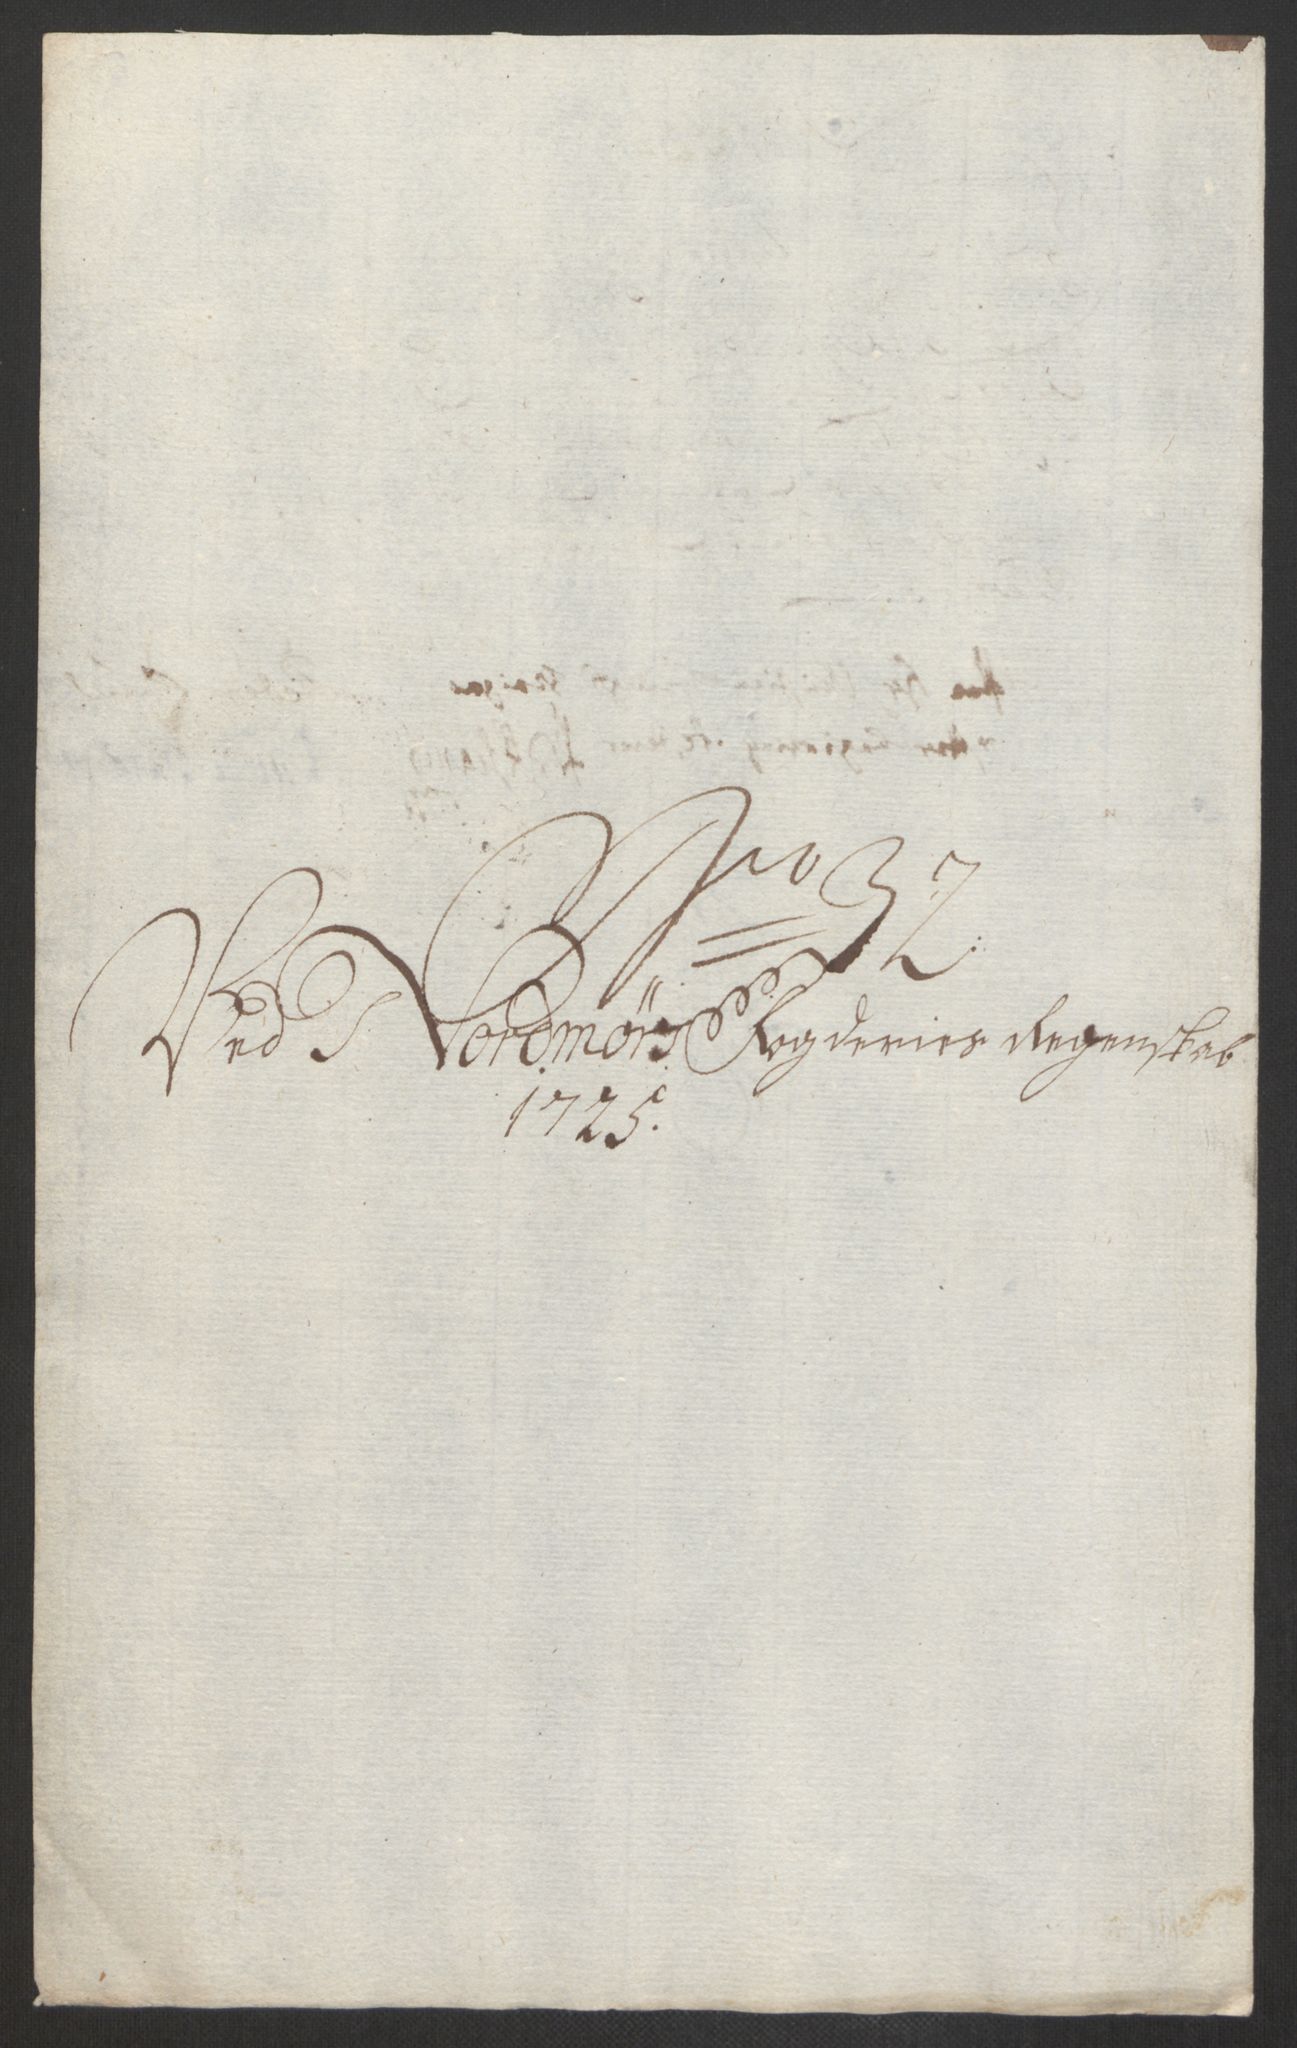 No 32
Ved Nordmørs Fogderies Regenskab
1725.